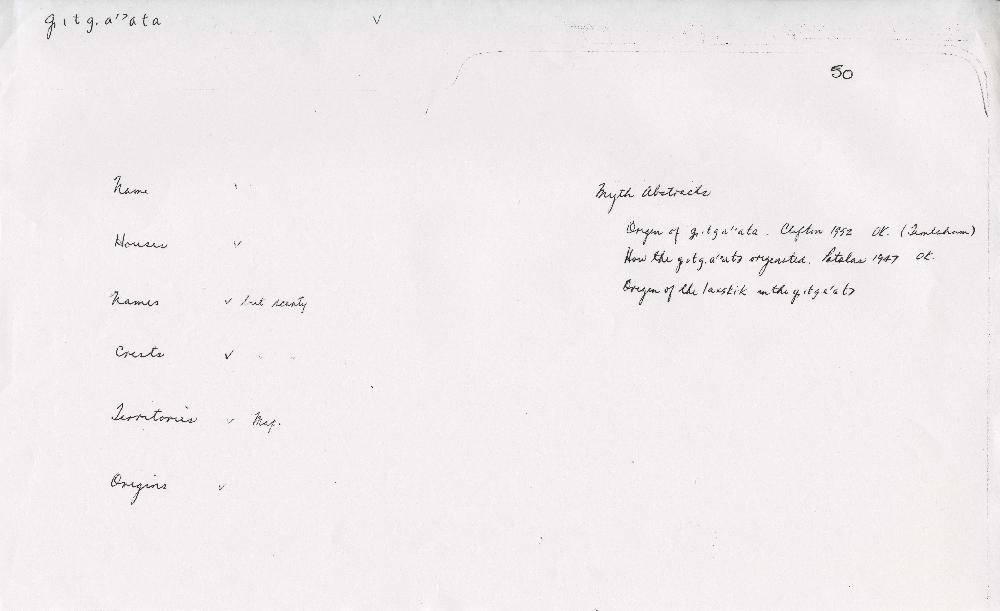 gitg.a'ʼata v
50
Name
Houses v
Names v but scanty
Crests v " "
Territories v Map.
Origins v
Myth Abstracts
Origin of gitga''ata. Clifton 1952 OK. (Temlaham)
How the gitg.a'ata originated. 1947 OK.
Origin of the laxskik in the gitga'ata